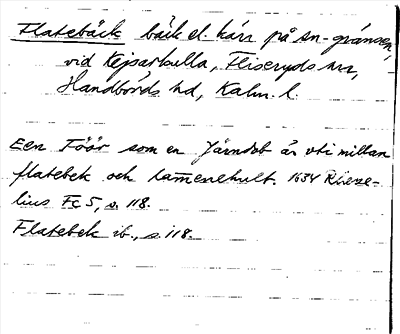 Flatebäck bäck el. kärr på sn-gränsen,
vid Kejsarkulla, Fliseryds sn,
Handbörds hd, Kalm. l.
Een Föör som en Järndob är uti millan
flatebek och lamenehult. 1634 Riese-
lius Fc 5, s. 118.
Flatebek ib., s. 118.